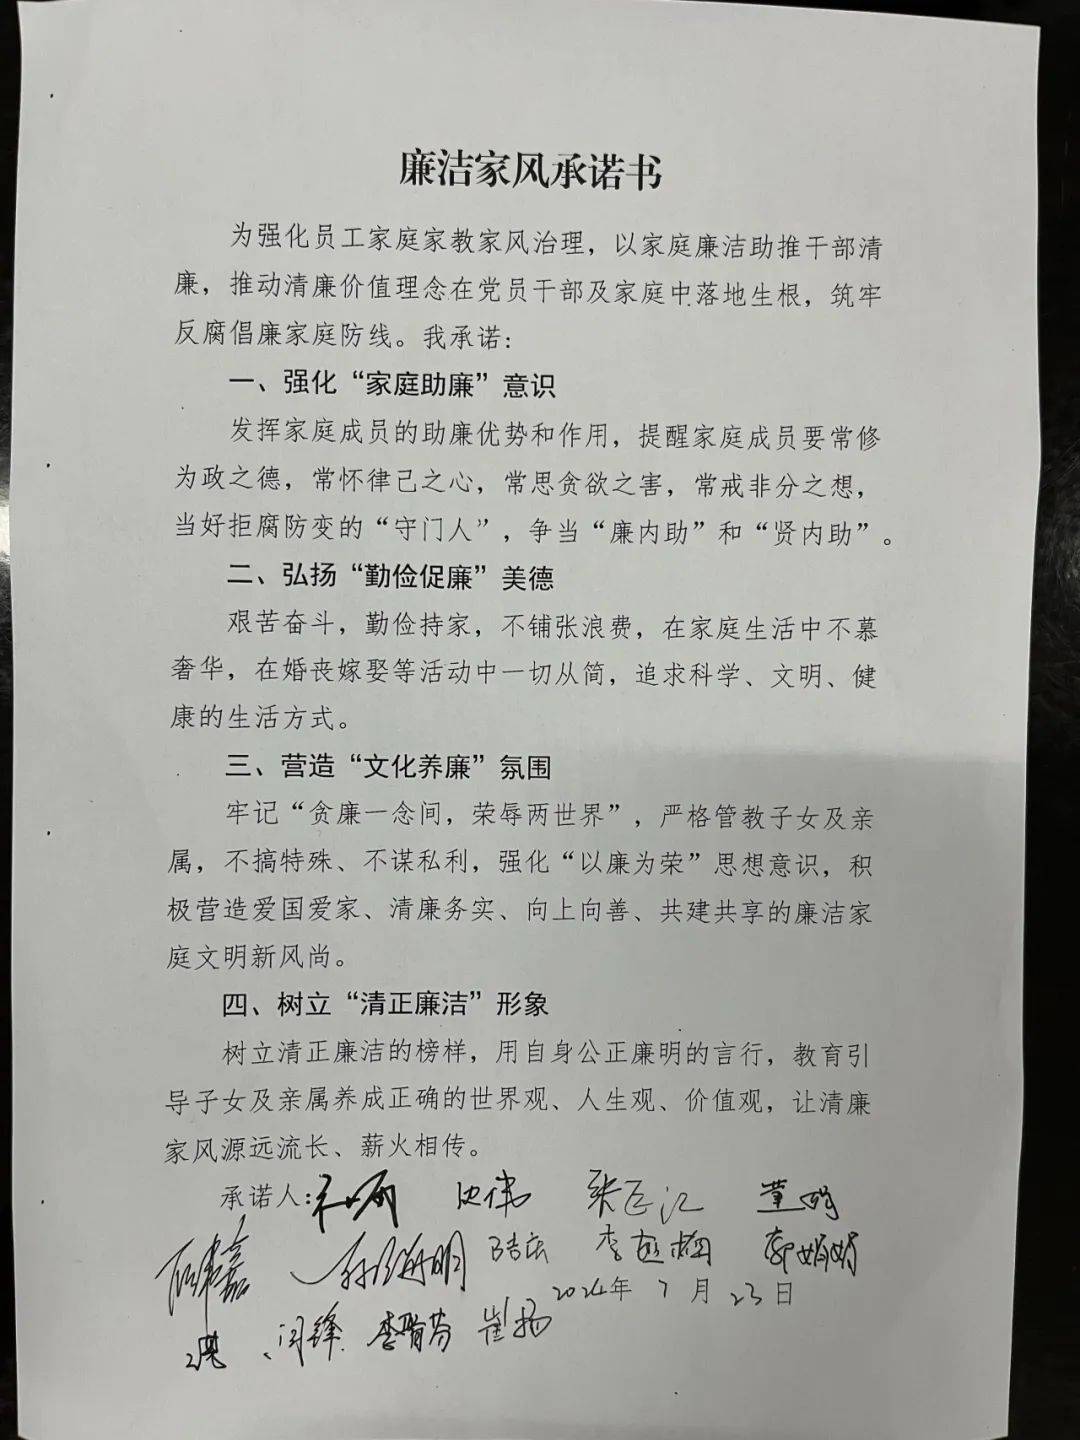 廉洁家风承诺书
为强化员工家庭家教家风治理，以家庭廉洁助推干部清
廉，推动清廉价值理念在党员干部及家庭中落地生根，筑牢
反腐倡廉家庭防线。我承诺：
一、强化“家庭助廉”意识
发挥家庭成员的助廉优势和作用，提醒家庭成员要常修
为政之德，常怀律己之心，常思贪欲之害，常戒非分之想，
当好拒腐防变的“守门人”，争当“廉内助”和“贤内助”。
二、弘扬“勤俭促廉”美德
艰苦奋斗，勤俭持家，不铺张浪费，在家庭生活中不慕
奢华，在婚丧嫁娶等活动中一切从简，追求科学、文明、健
康的生活方式。
三、营造“文化养廉”氛围
牢记“贪廉一念间，荣辱两世界”，严格管教子女及亲
属，不搞特殊、不谋私利，强化“以廉为荣”思想意识，积
极营造爱国爱家、清廉务实、向上向善、共建共享的廉洁家
庭文明新风尚。
四、树立“清正廉洁”形象
树立清正廉洁的榜样，用自身公正廉明的言行，教育引
导子女及亲属养成正确的世界观、人生观、价值观，让清廉
家风源远流长、薪火相传。
承诺人：
郭娟娟
2024年7月23日
闫锋 崔扬